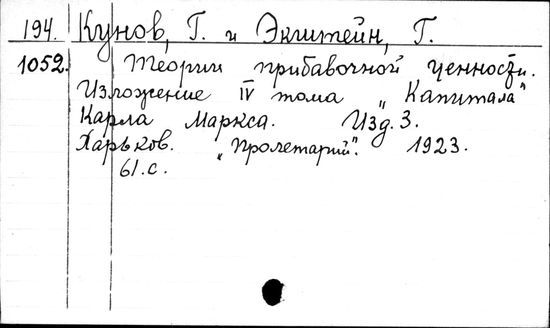 194. Кунов, Г. и Экштейн, Г.
1052. Теории прибавочной ценности.
Изложение IV тома „Капитала"
Карла Маркса. Изд. 3.
Харьков. „Пролетарий". 1923.
61.с.